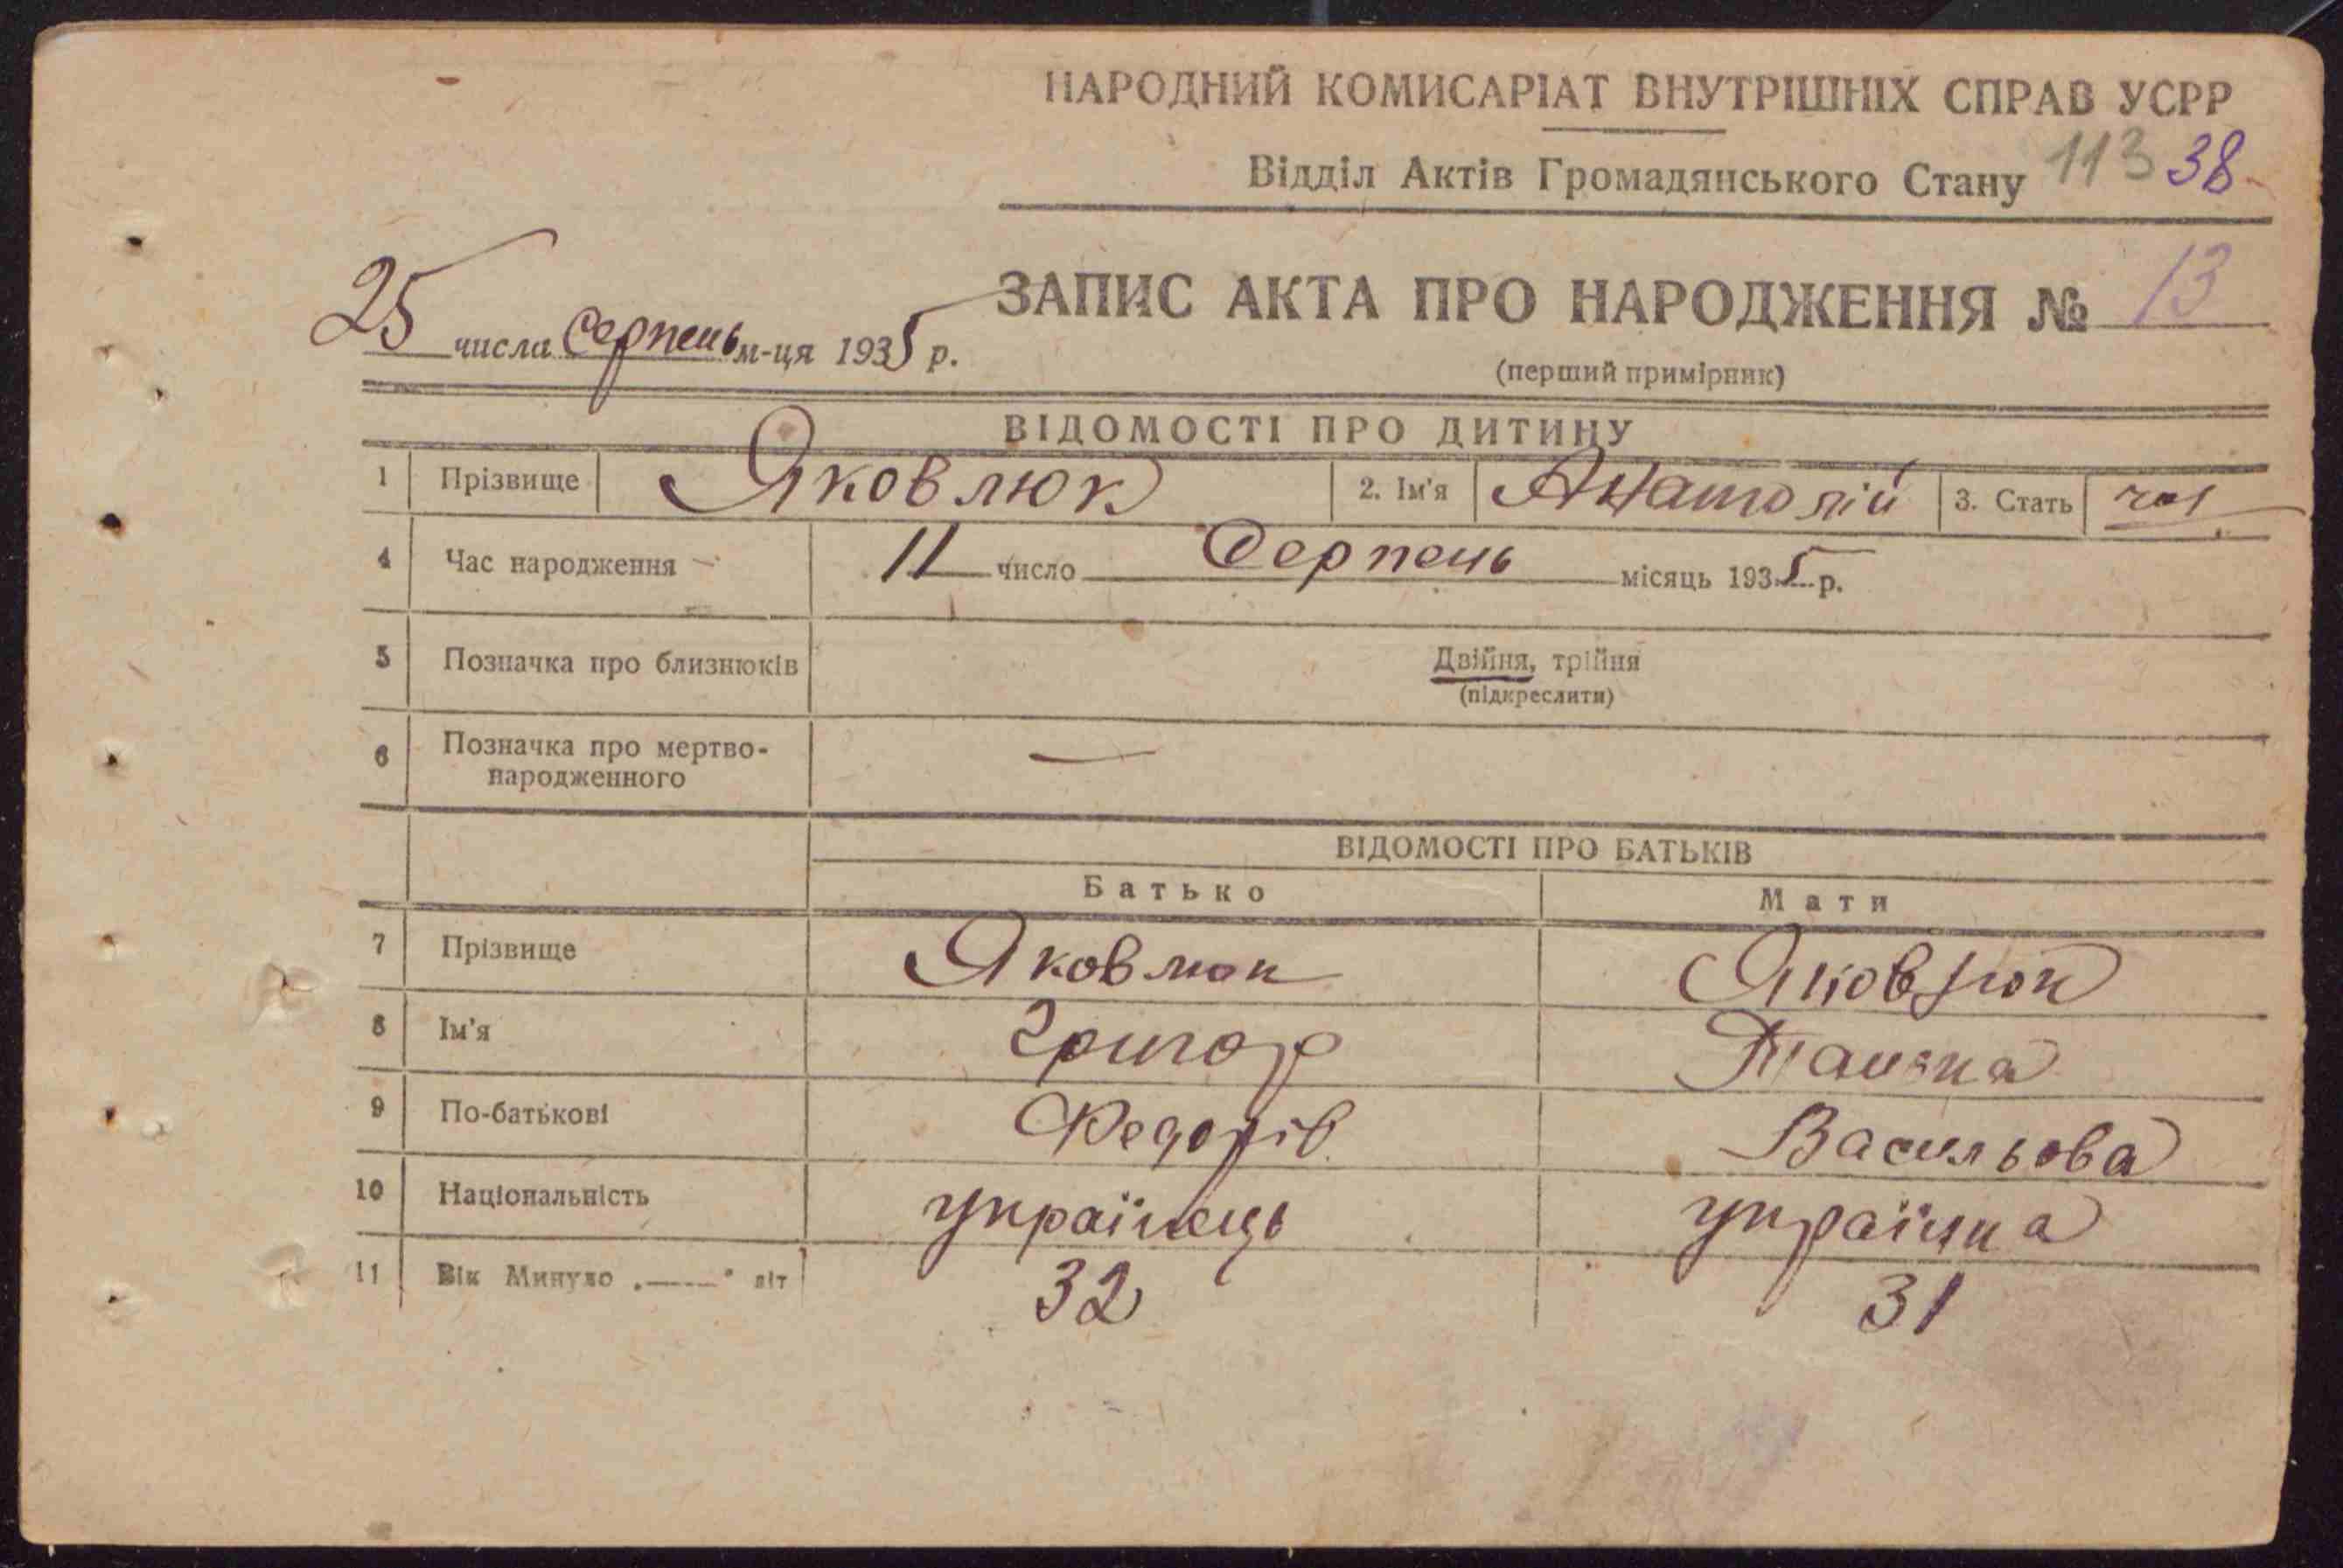 НАРОДНИЙ КОМИСАРІАТ ВНУТРІШНІХ СПРАВ УСРР
Відділ Актів Громадянського Стану 113 38
ЗАПИС АКТА ПРО НАРОДЖЕННЯ № 13
25 числа серпень м-ця 1935 р.
(перший примірник)
ВІДОМОСТІ ПРО ДИТИНУ
1 Прізвище Яковлюк 2. Ім'я Анатолій 3. Стать чол
4 Час народження 11 число Серпень місяць 1935 р.
5 Позначка про близнюків Двійня, трійня
(підкреслити)
6 Позначка про мертво-
народженного —
ВІДОМОСТІ ПРО БАТЬКІВ
Батько Мати
7 Прізвище Яковлюк Яковлюк
8 Ім'я Григор
9 По-батькові Федорів Васильова
10 Національність українець українка
11 Вік Минуло „——" літ 32 31